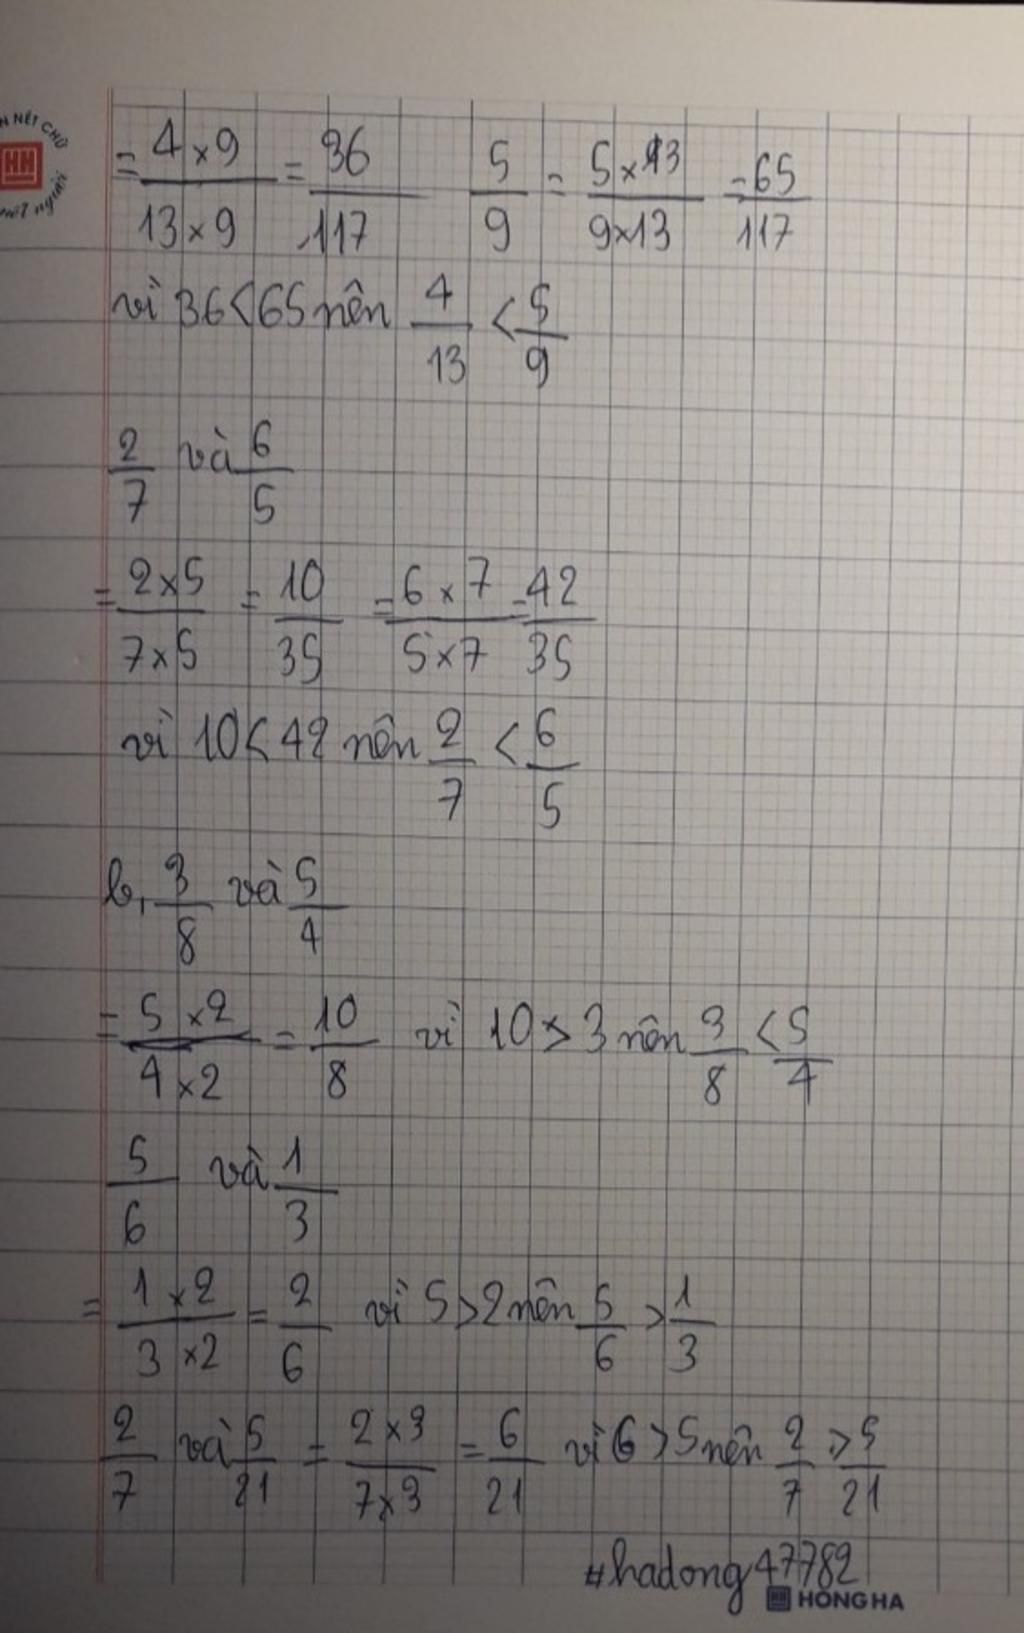 N NÉT CHỮ
nết người
= 4 × 9 / 13 × 9 = 36 / 117 5 / 9 = 5 × 13 / 9 × 13 = 65 / 117
vì 36 < 65 nên 4 / 13 < 5 / 9
2 / 7 và 6 / 5
= 2 × 5 / 7 × 5 = 10 / 35 = 6 × 7 / 5 × 7 = 42 / 35
vì 10 < 42 nên 2 / 7 < 6 / 5
b, 3 / 8 và 5 / 4
= 5 × 2 / 4 × 2 = 10 / 8 vì 10 > 3 nên 3 / 8 < 5 / 4
5 / 6 và 1 / 3
= 1 × 2 / 3 × 2 = 2 / 6 vì 5 > 2 nên 5 / 6 > 1 / 3
2 / 7 và 5 / 21 = 2 × 3 / 7 × 3 = 6 / 21 vì 6 > 5 nên 2 / 7 > 5 / 21
#hadong47782
HONG HA